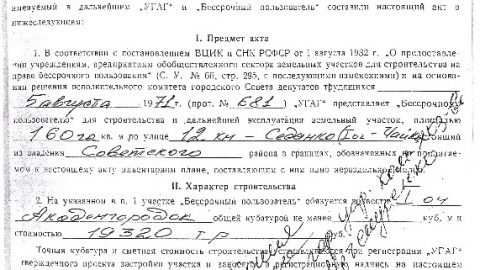 именуемый в дальнейшем „УГАГ" и „Бессрочный пользователь" составили настоящий акт о
нижеследующем:
I. Предмет акта
1. В соответствии с постановлением ВЦИК и СНК РСФСР от 1 августа 1932 г. „О предоставле-
нии учреждениям, предприятиям обобществленного сектора земельных участков для строительства на
праве бессрочного пользования" (С. У. № 66, стр. 295, с последующими изменениями) и на основа-
нии решения исполнительного комитета городского Совета депутатов трудящихся
5 августа 1971 г. (прот. № 681) „УГАГ" представляет „Бессрочн
пользователю" для строительства и дальнейшей эксплуатации участок, площадью
160 га кв. м по улице 12 км – Седанка
из владения Советского района в границах, обозначенных на прилагае-
мом к настоящему акту инвентарном плане, составляющим с ним одно нераздельное целое.
II. Характер строительства
2. На указанном в п. 1 участке „Бессрочный пользователь" обязуется возвести I оч
Академгородок общей кубатурой не менее куб. м и
стоимостью 19320 т.р
Точная кубатура и сметная стоимость строительства при регистрации „УГАГ"
утвержденного проекта застройки участка и надписью на настоящем